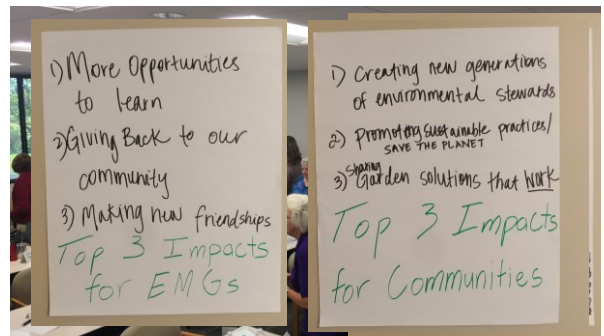 1) More Opportunities
to learn
2) Giving Back to our
community
3) Making new friendships
Top 3 Impacts
for EMGs
1) Creating new generations
of environmental stewards
2) Promoting sustainable practices/
SAVE THE PLANET
3) sharing Garden solutions that work
Top 3 Impacts
for Communities